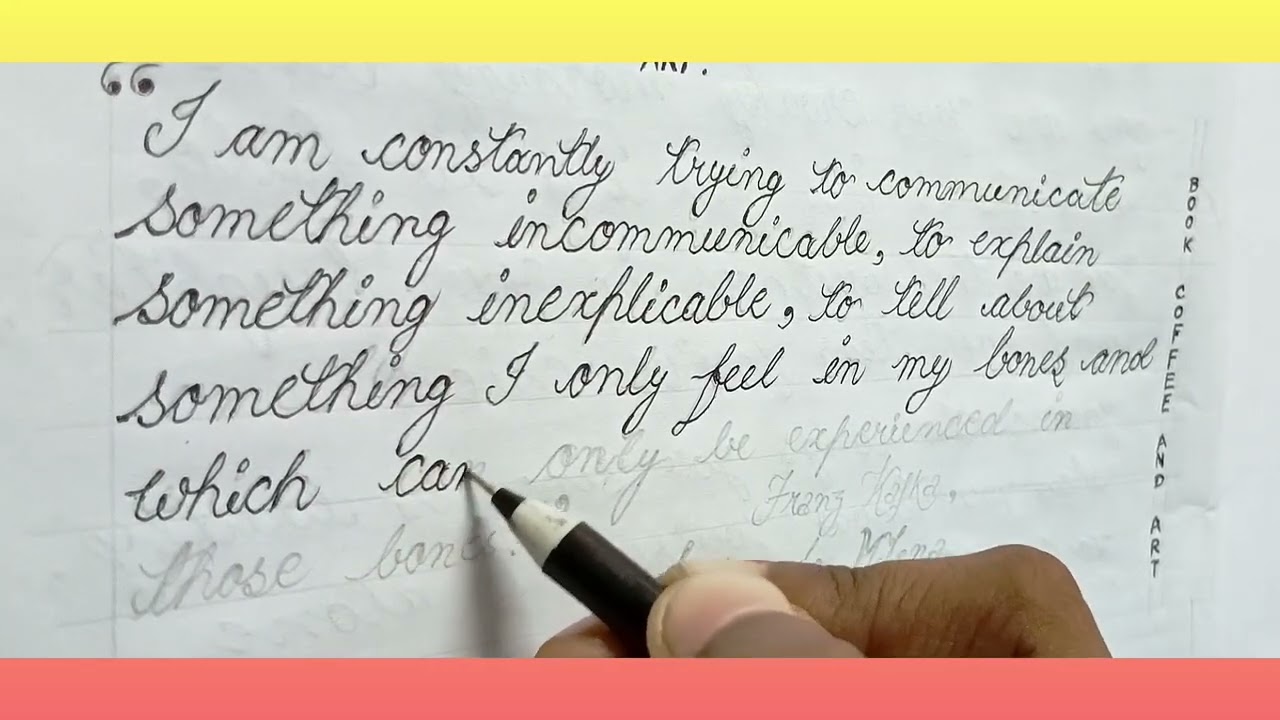 ART.
“I am constantly trying to communicate
something incommunicable, to explain
something inexplicable, to tell about
something I only feel in my bones and
which can only be experienced in
those bones.
Franz Kafka,
to Milena
BOOK COFFEE AND ART